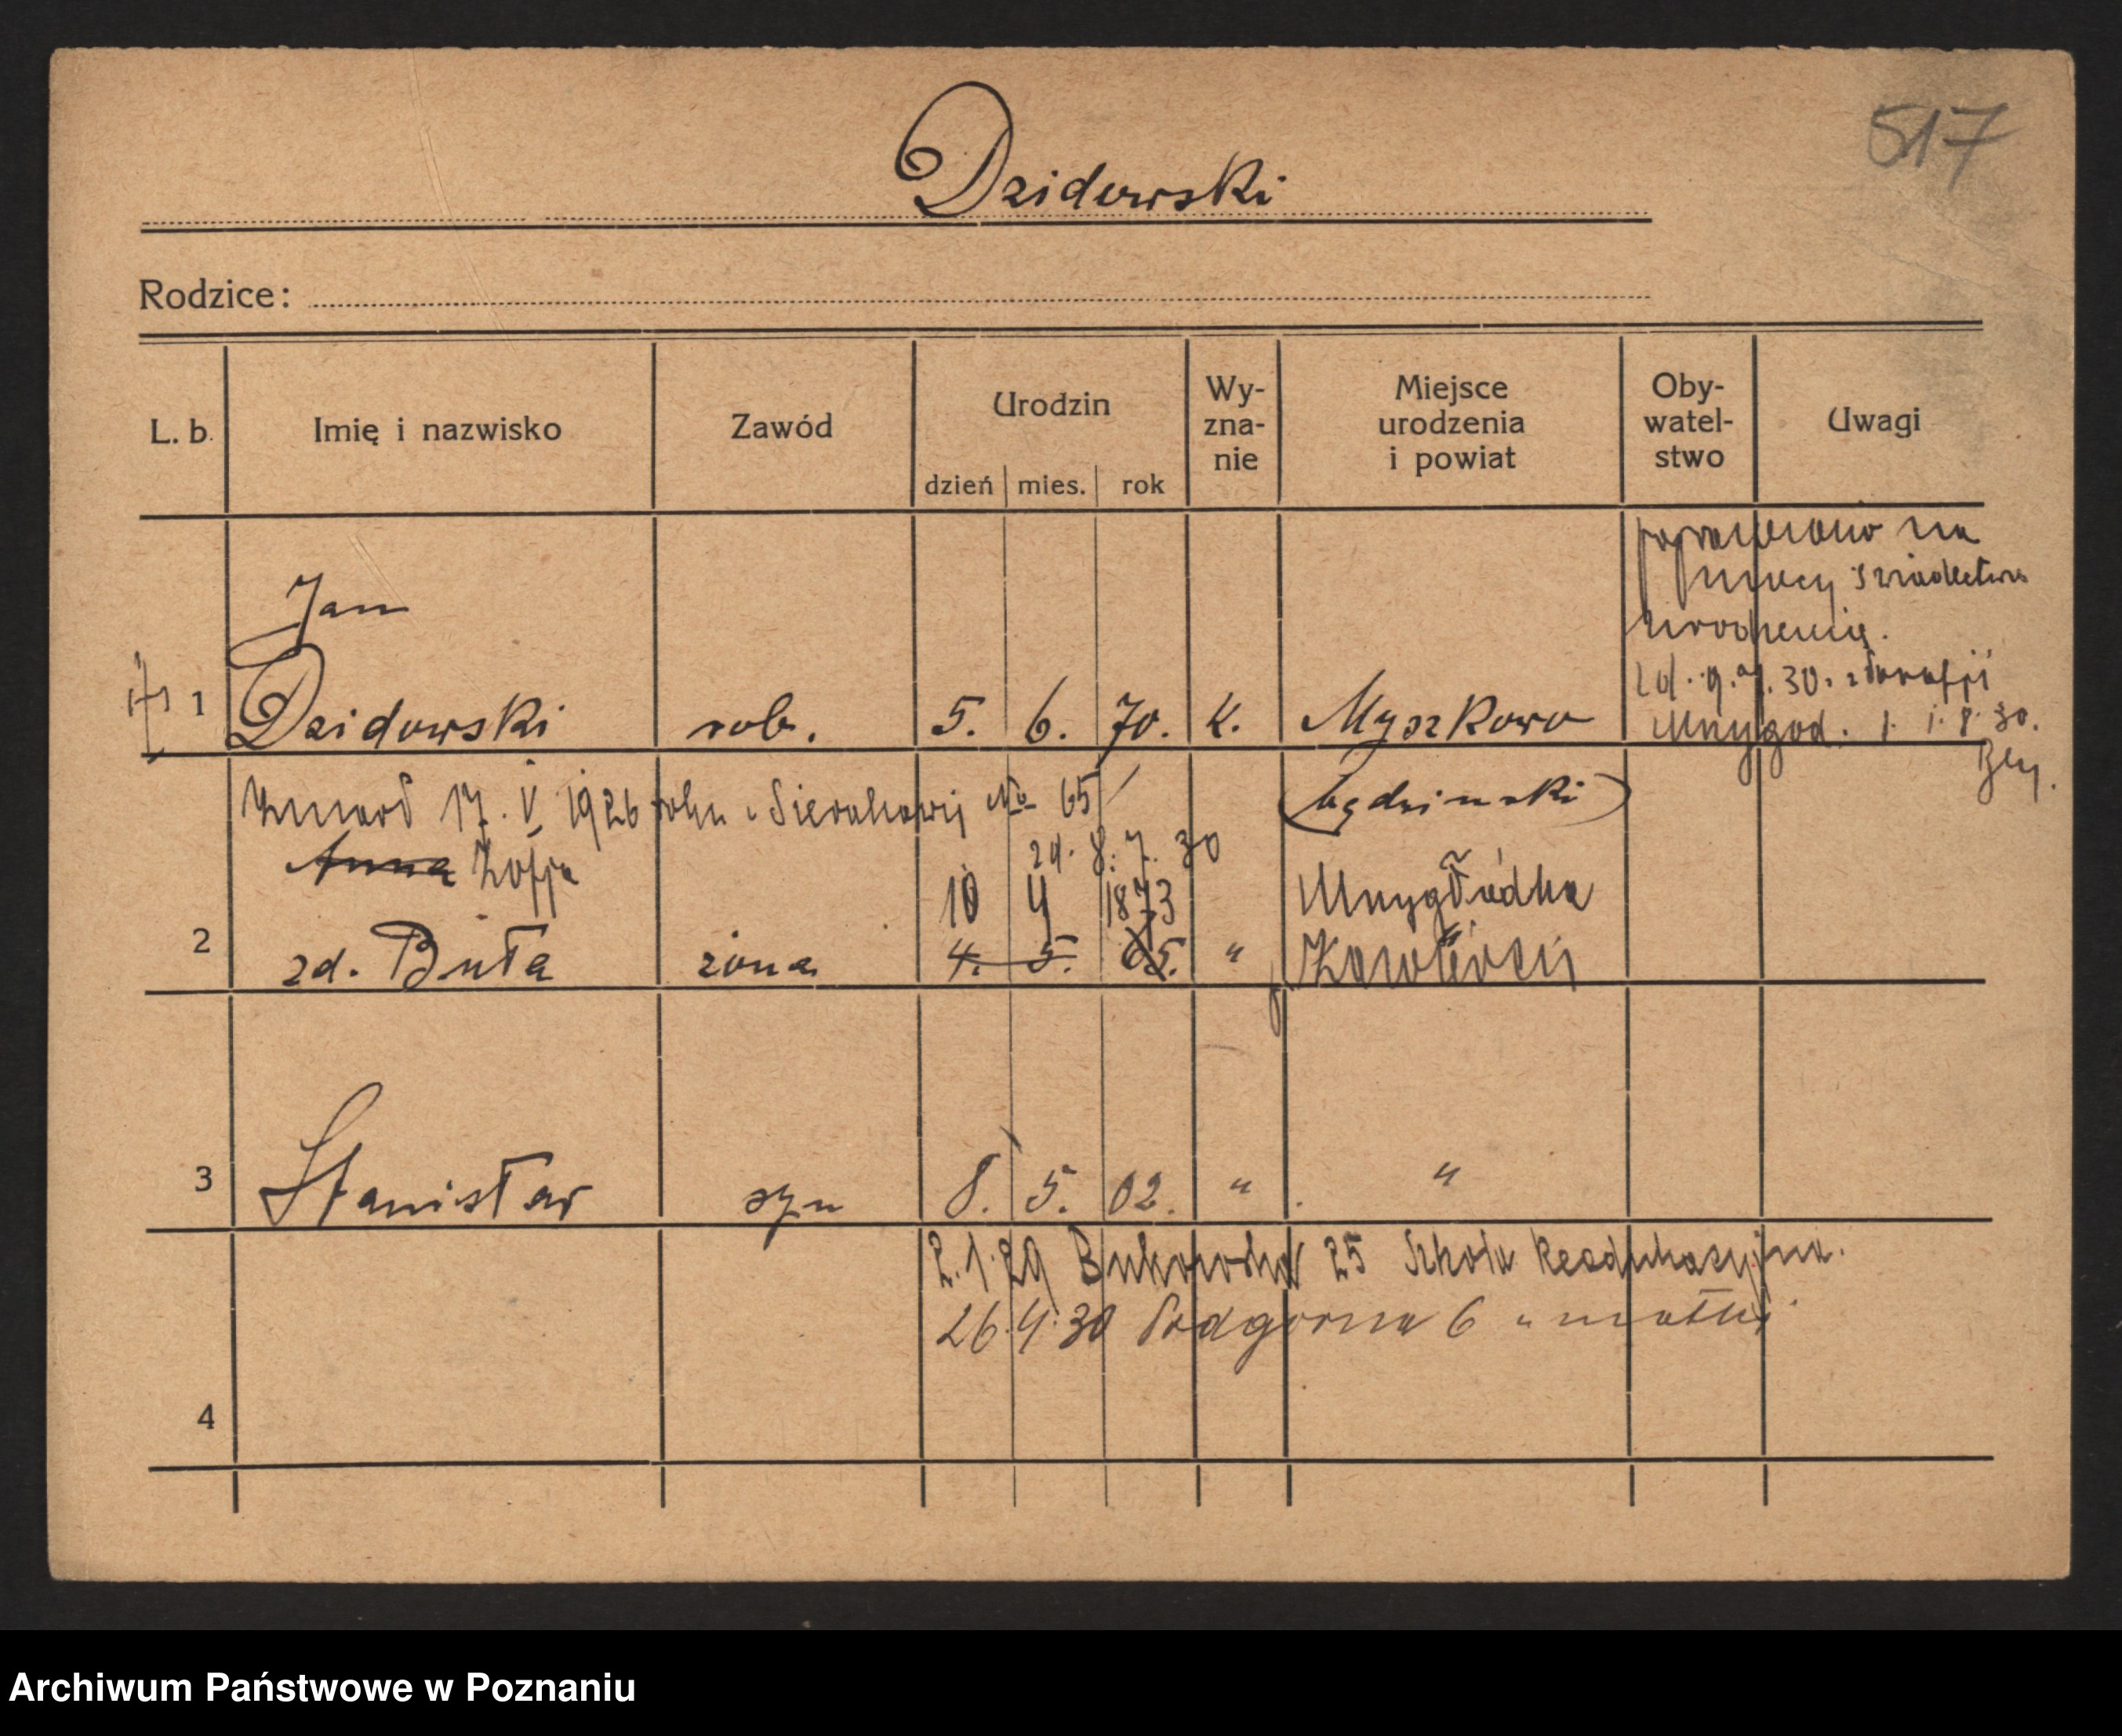 517
Dzidowski
Rodzice:
L. b.
Imię i nazwisko
Zawód
Urodzin
dzień mies. rok
Wy-
zna-
nie
Miejsce
urodzenia
i powiat
Oby-
watel-
stwo
Uwagi
poprawiono na
mocy świadectwa
urodzenia.
z d. 9.7.30. z Parafji
Mnygod. 1.8.30.
Jan
1 Dzidowski rob. 5. 6. 70. K. Myszkowo
zmarł 17. V 1926 roku Sierakowij No 65
(będzinski)
24. 8. 7. 30
Anna Zofja 10 4 1873 Mnygłódka
2 zd. Buła żona 4. 5. 65. "
3 Stanisław syn 8. 5. 02. " "
2.1.29 Bukowska 25 Szkoła Reedukacyjna.
26.4.30 Podgórna 6 u matki
4
Archiwum Państwowe w Poznaniu